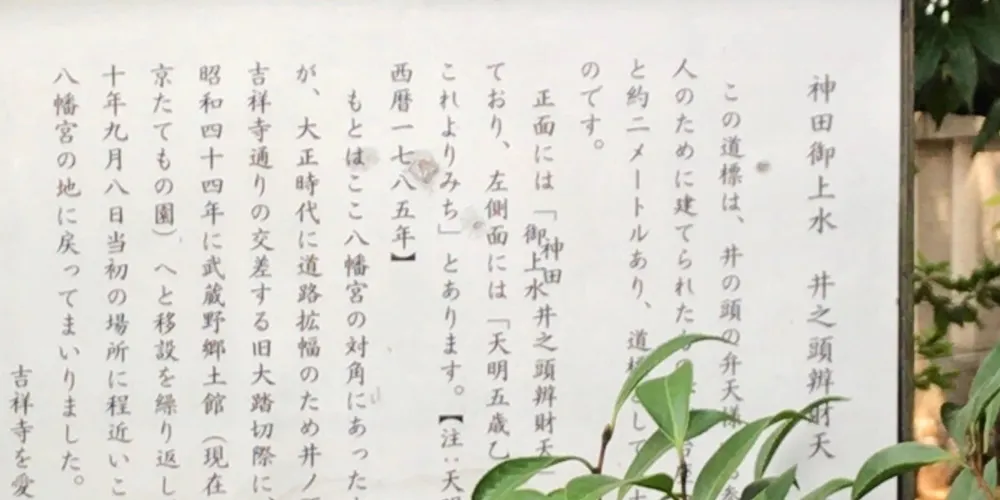 神田御上水 井之頭辨財天
この道標は、井の頭の弁天様
人のために建てられた
と約二メートルあり、道標として
のです。
正面には「神田御上水井之頭辨財天
ており、左側面には「天明五歳乙
これよりみち」とあります。【注:天明
西暦一七八五年】
もとはここ八幡宮の対角にあった
が、大正時代に道路拡幅のため井ノ
吉祥寺通りの交差する旧大踏切際に、
昭和四十四年に武蔵野郷土館(現在
京たてもの園)へと移設を繰り返し
十年九月八日当初の場所に程近いこ
八幡宮の地に戻ってまいりました。
吉祥寺を愛